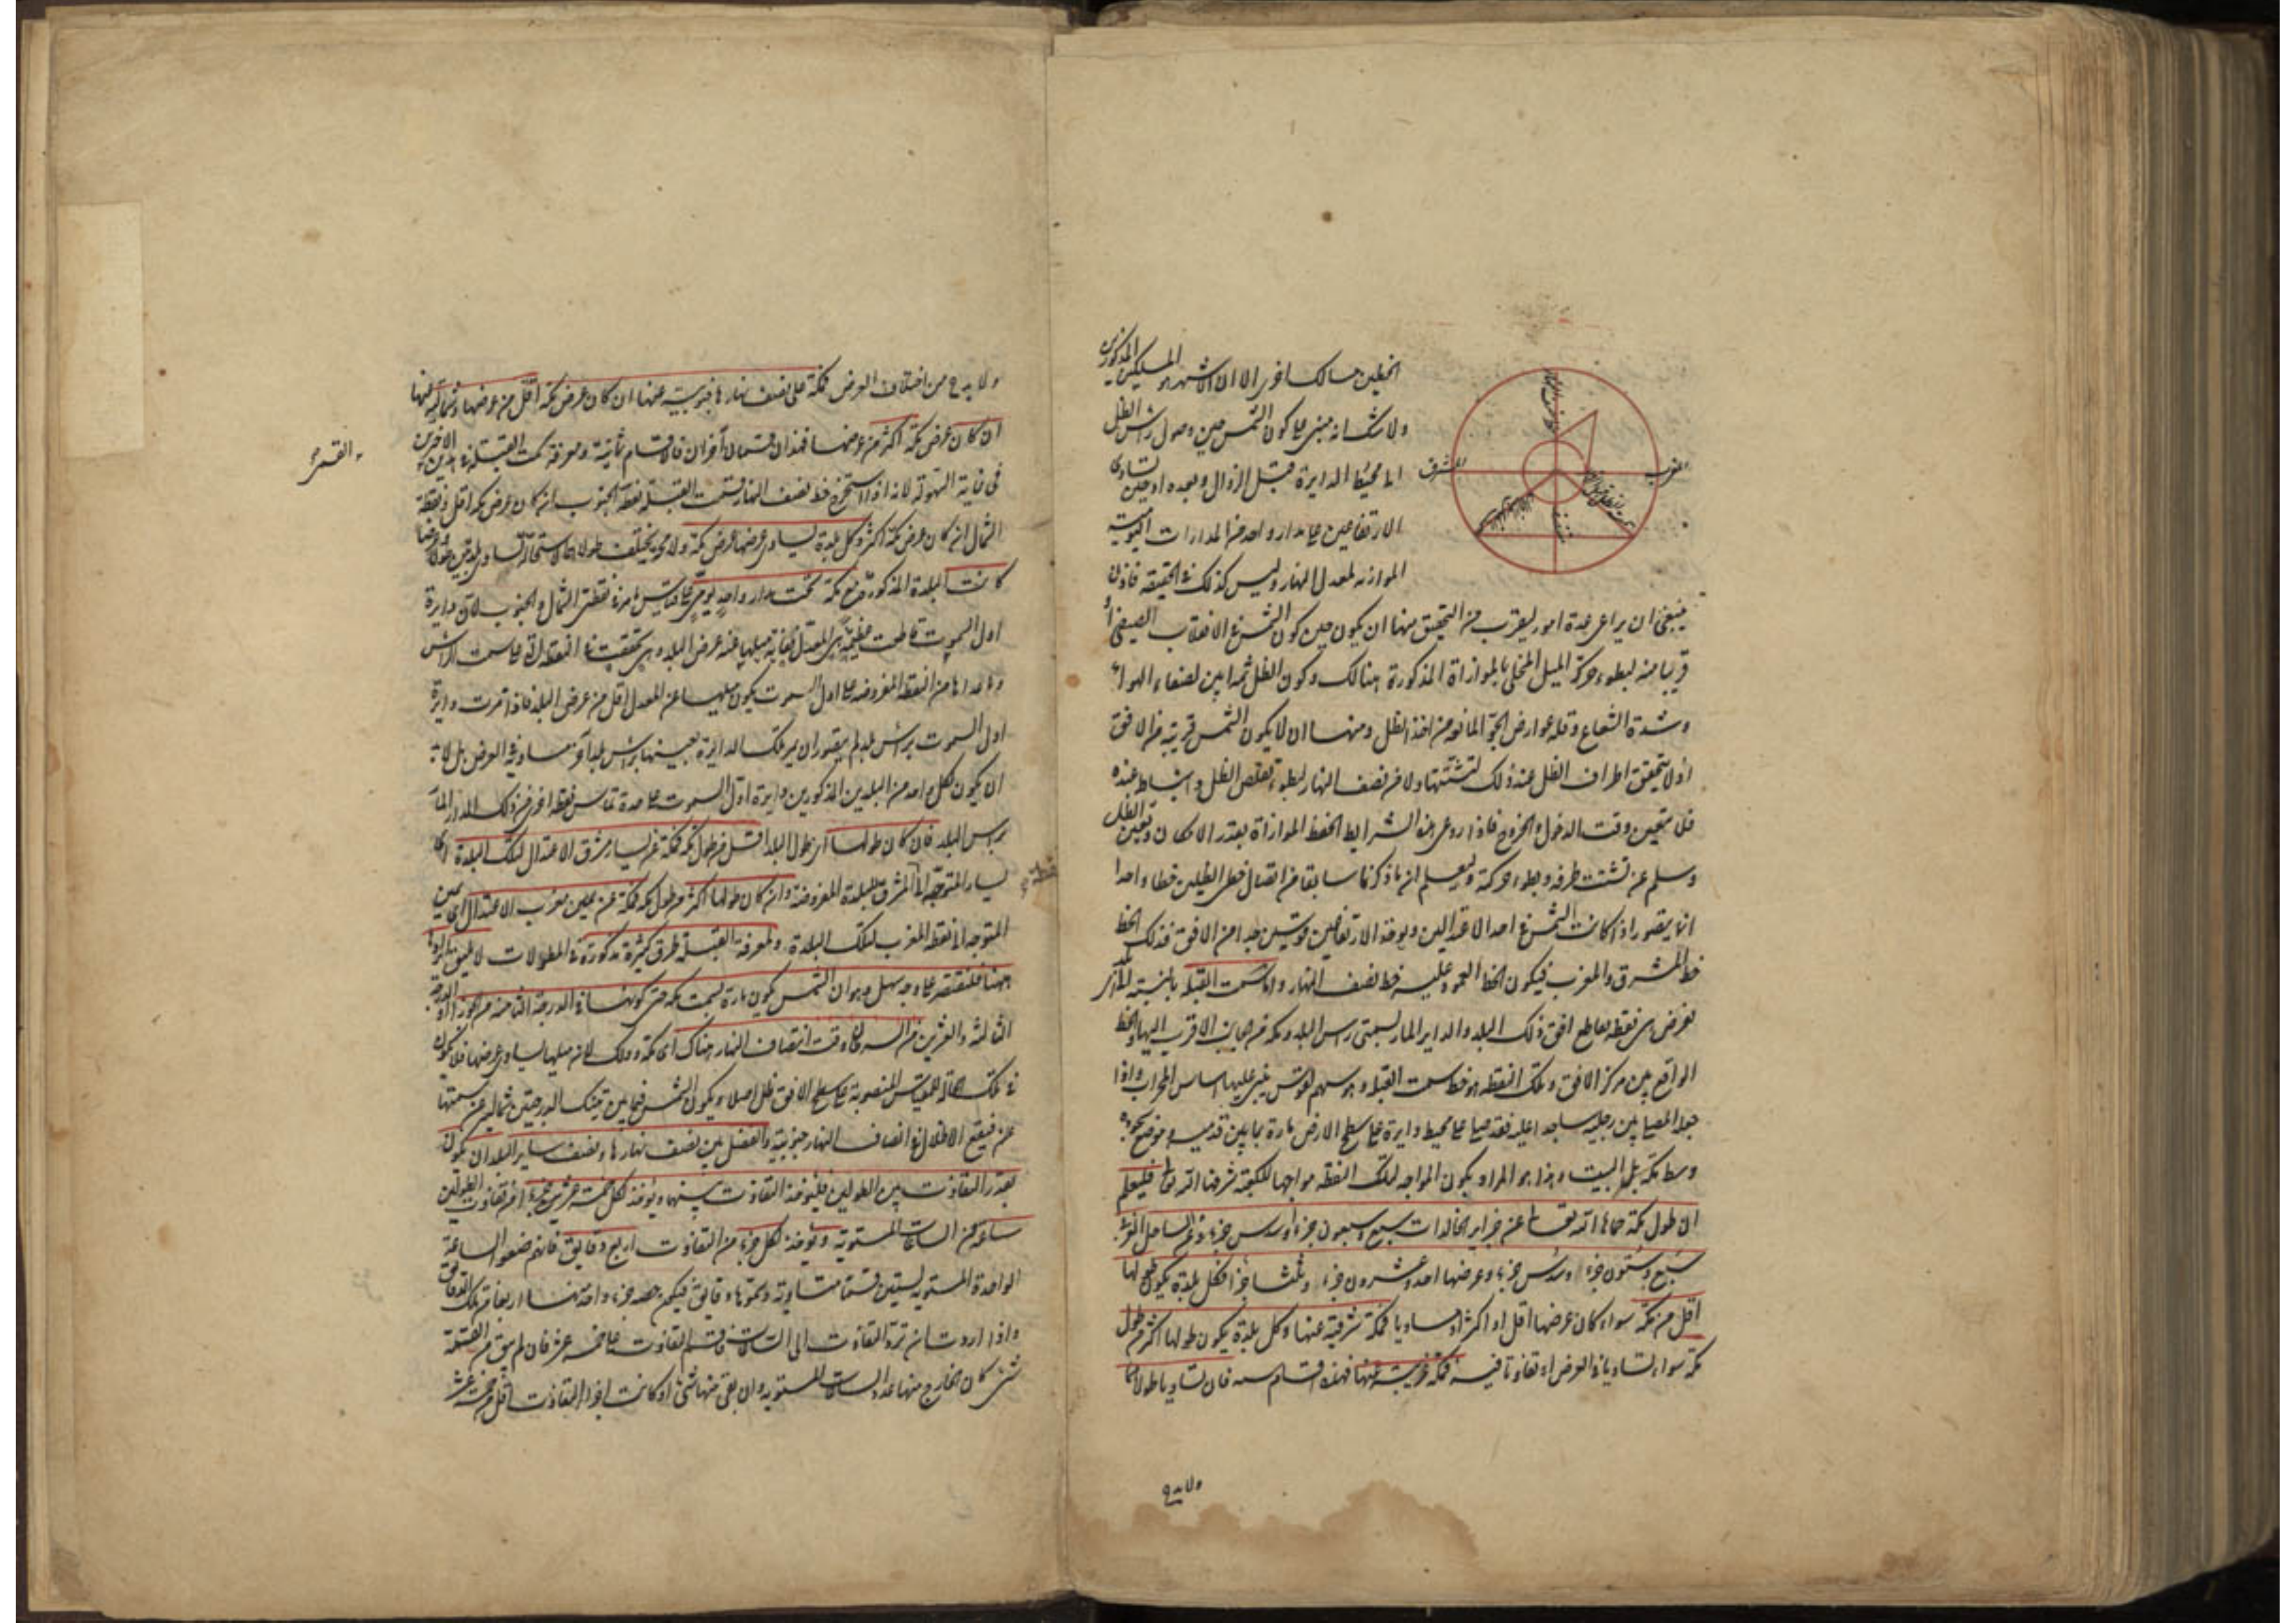 الخطين مسالك اخرى الا ان الاشهر هو المسلكين المذكورين
ولا شك انه مبنى على كون الشمس حين وصول راس الظل
الى محيط الدايرة قبل الزوال وبعده او حين تساوى
الارتفاعين على مدار واحد من المدارات اليومية
الموازية لمعدل النهار وليس كذلك فى الحقيقة فاذن
المغرب
المشرق
ينبغى ان يراعى عدة امور ليقرب من التحقيق منها ان يكون حين كون الشمس فى الانقلاب الصيفى او
قريبا منه لبطوء حركة الميل المخل بالموازاة المذكورة هنالك وكون الظل ثمه ابين لصفاء الهواء
وشدة الشعاع وقلة عوارض الجو المانعة من اخذ الظل ومنها ان لا يكون الشمس قريبة من الافق
اذ لا يتحقق اطراف الظل عند ذلك لتشتتها ولا من نصف النهار لبطوء تقلص الظل وانبساط عنده
فلا يتعين وقت الدخول والخروج فاذا روعى هذه الشرايط انحفظ الموازاة بقدر الامكان وتعين الظل
وسلم عن تشتت طرفه وبطوء حركته وليعلم ان ما ذكرنا سابقا من اتصال خطى الظلين خطا واحدا
انما يتصور اذا كانت الشمس فى احد الاعتدالين ويوخذ الارتفاعين قويتين جدا من الافق فذلك الخط
خط المشرق والمغرب فيكون الخط العمود عليه خط نصف النهار واما سمت القبلة بالنسبة الى بلد
نفرض هى نقطة تقاطع افق ذلك البلد والداير المار بسمتى راس البلد ومكة من جانب الاقرب اليها والخط
الواقع بين مركز الافق وتلك النقطة هو خط سمت القبلة وهو سهم لقوس يبنى عليها اساس المحراب واذا
جعل المصلى بين رجليه ساجدا عليه فقد صلى على محيط دايرة على سطح الارض مارة بما بين قدميه وموضع سجوده
وسط مكة بل البيت وهذا هو المراد بكون المواجه لتلك النقطة مواجها للكعبة شرفها الله تعالى فليعلم
ان طول مكة حماها الله تعالى عن جزاير الخالدات سبع وسبعون جزء وسدس جزء وعن الساحل الغربى
سبع وستون جزء وسدس جزء وعرضها احد وعشرون جزء وثلثا جزء فكل بلدة يكون طولها
اقل من مكة سواء كان عرضها اقل او اكثر او مساويا فمكة شرقية عنها وكل بلدة يكون طولها اكثر من طول
مكة سواء تساويا فى العرض او تفاوتا فيه فمكة غربية عنها فهذه اقسام سته فان تساويا طولاهما
ولا بد ح
ولا بد ح من اختلاف العرض فمكة على نصف نهارها جنوبية عنها ان كان عرض مكة اقل من عرضها وشمالية عنها
ان كان عرض مكة اكثر من عرضها فهذان قسمان اخران فالاقسام ثمانية ومعرفة سمت القبلة فى هذين الاخرين
فى غاية السهولة لانه اذا استخرج خط نصف النهار فسمت القبلة نقطة الجنوب ان كان عرض مكة اقل ونقطة
الشمال ان كان عرض مكة اكثر وكل بلدة يساوى عرضها عرض مكة ولا محالة يختلف طولاهما لاستحالة تساوى بلدتين طولا وعرضا
كانت البلدة المذكورة مع مكة تحت مدار واحد يومى على قياس ما مر فى نقطتى الشمال والجنوب لان دايرة
اول السموت قاطعت عظيمة هى المعدل فغاية ميلها عنه عرض البلد وهى تحققت فى النقطة التى على سمت الراس
وما عداها من النقط المفروضة على اول السموت يكون ميلها عن المعدل اقل من عرض البلد فاذا مرت دايرة
اول السموت براس بلد لم يتصور ان يمر تلك الدايرة بعينها براس بلد اخر مساو فى العرض بل لا بد
ان يكون لكل واحد من البلدين المذكورين دايرة اول السموت على حدة تماس نقطة اخرى من ذلك المدار المار
براس البلد فان كان طولها اى طول البلد اقل من طول مكة فمكة عن يسار مشرق الاعتدال لتلك البلدة اى
يسار المتوجه الى المشرق للبلدة المفروضة وان كان طولها اكثر من طول مكة فمكة عن يمين مغرب الاعتدال اى يمين
المتوجه الى نقطة المغرب لتلك البلدة ولمعرفة القبلة طرق كثيرة مذكورة فى المطولات لا يليق ايرادها
ههنا فلنقتصر على وجه سهل وهو ان الشمس يكون مارة بسمت مكة حين كونها فى الدرجة الثامنة من الجوزاء والدرجة
الثالثة والعشرين من السرطان وقت انتصاف النهار هناك اى بمكة وذلك لان ميلها يساوى عرضها فلا يكون
فى تلك الحالة للمقياس المنصوبة على سطح الافق ظل اصلا ويكون الشمس فيما بين تينك الدرجتين شمالية عن سمتها
عن فيقع الاظلال فى انصاف النهار جنوبية والفضل بين نصف نهارها ونصف ساير البلدان يكون
بقدر التفاوت بين الطولين فليوخذ التفاوت بينهما ويوخذ لكل خمسة عشر جزء من تفاوت الطولين
ساعة من الساعات المستوية ويوخذ لكل جزء من التفاوت اربع دقايق فانهم ضعوا الساعة
الواحدة المستوية بستين قسما متساوية وسموها دقايق فيكون حصة جزء واحد منها اربعا من تلك الدقايق
واذا اردت ان ترد التفاوت الى الساعات فاقسم التفاوت على خمسة عشر فان لم يبق من القسمة
شئ كان الخارج منها عدد الساعات المستوية وان بقى منها شئ او كانت اجزاء التفاوت اقل من خمسة عشر